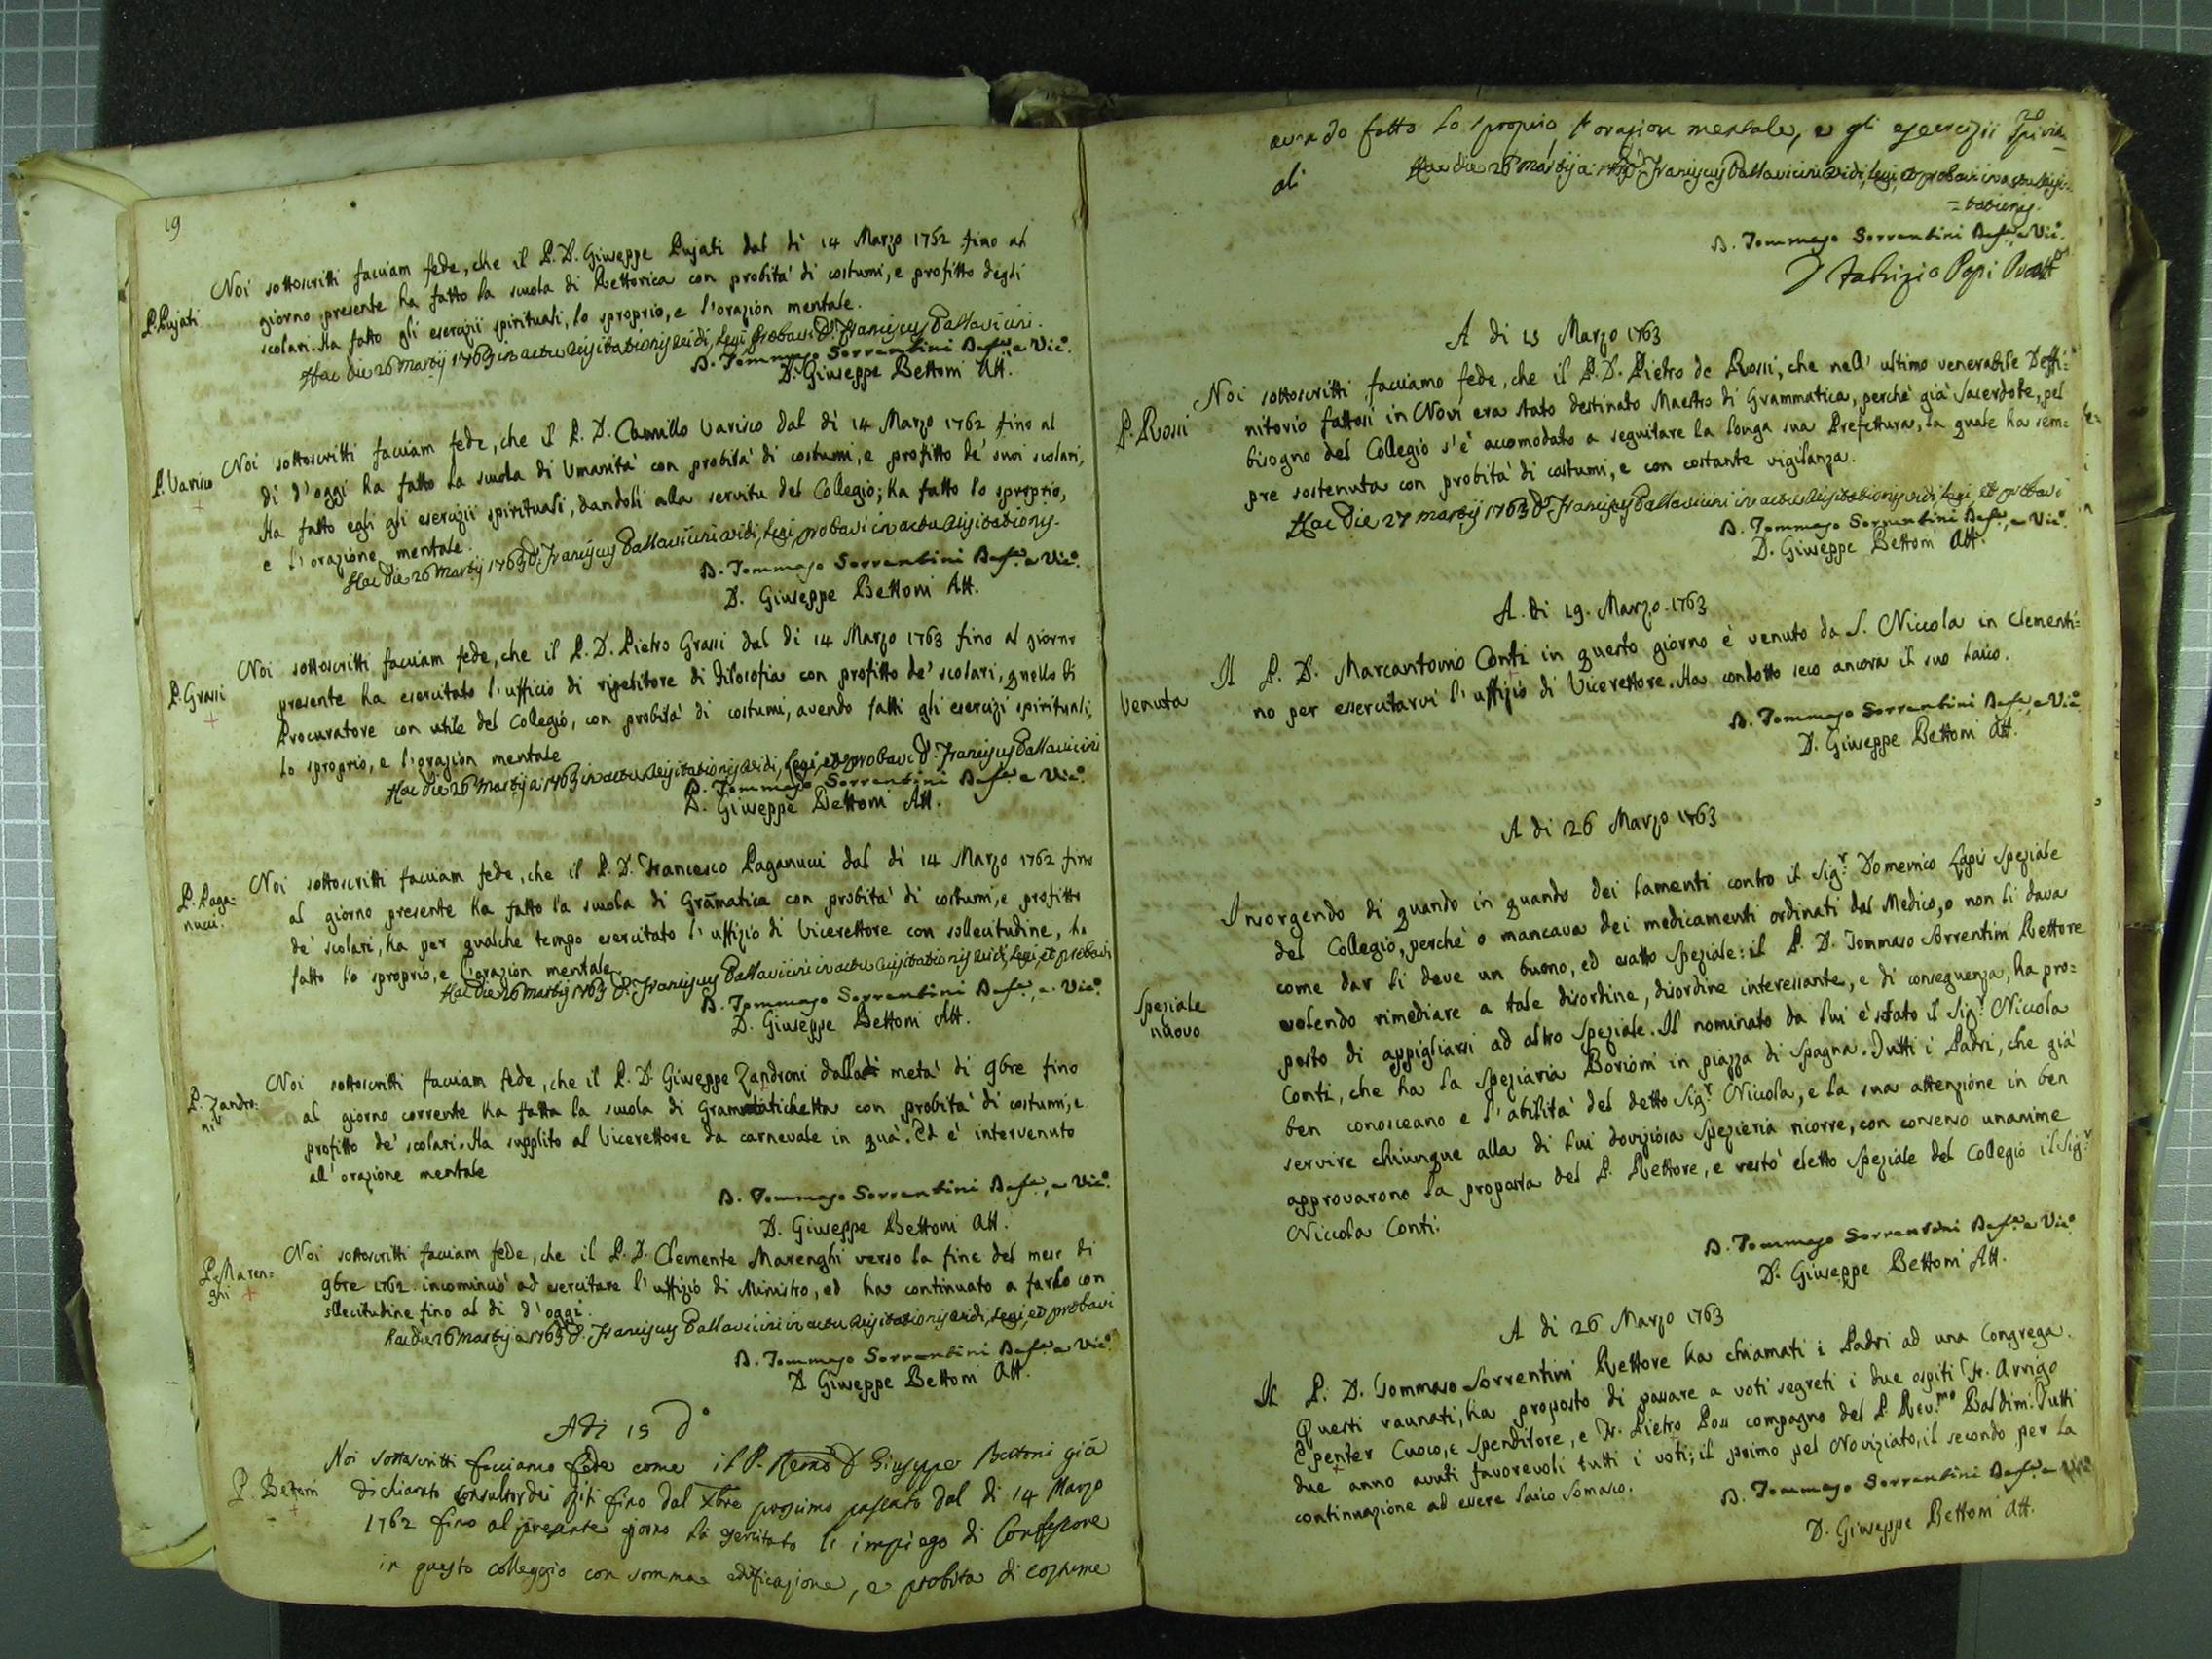 19
P. Pujati
Noi sottoscritti facciam fede, che il P. D. Giuseppe Pujati dal dì 14 Marzo 1762 fino al
giorno presente ha fatto la scuola di Rettorica con probità di costumi, e profitto degli
scolari. Ha fatto gli esercizii spirituali, lo sproprio, e l'orazion mentale.
Hac die 26 Martij 1763 in actu visitationis vidi, legi probavi D. Franciscus Pallavicini.
D. Tommaso Sorrentini Ret.e, e Vic.o
D. Giuseppe Bettoni Att.
P. Varisco
Noi sottoscritti facciam fede, che il P. D. Camillo Varisco dal dì 14 Marzo 1762 fino al
dì d'oggi ha fatto la scuola di Umanità con probità di costumi, e profitto de' suoi scolari,
Ha fatto egli gli esercizii spirituali, dandoli alla servitu del Collegio; ha fatto lo sproprio,
e l'orazione mentale.
Hac die 26 Martij 1763 D. Franciscus Pallavicini vidi, legi, probavi in actu visitationis.
D. Tommaso Sorrentini e Vic.o
D. Giuseppe Bettoni Att.
P. Grassi
Noi sottoscritti facciam fede, che il P. D. Pietro Grassi dal dì 14 Marzo 1763 fino al giorno
presente ha esercitato l'ufficio di ripetitore di Filosofia con profitto de' scolari, quello di
Procuratore con utile del Collegio, con probità di costumi, avendo fatti gli esercizi spirituali,
lo sproprio, e l'orazion mentale
Hac die 26 Martij a 1763 in actu visitationis vidi, legi, et probavi D. Franciscus Pallavicini
D. Tommaso Sorrentini e Vic.o
D. Giuseppe Bettoni Att.
P. Paga-
nucci.
Noi sottoscritti facciam fede, che il P. D. Francesco Paganucci dal dì 14 Marzo 1762 fino
al giorno presente ha fatto la scuola di Grāmatica con probità di costumi, e profitto
de' scolari, ha per qualche tempo esercitato l'uffizio di Vicerettore con sollecitudine, ha
fatto lo sproprio, e l'orazion mentale.
Hac die 26 Martij 1763 D. Franciscus Pallavicini in actu visitationis vidi, legi, et probavi
D. Tommaso Sorrentini e Vic.o
D. Giuseppe Bettoni Att.
P. Zandro-
ni
Noi sottoscritti facciam fede, che il P. D. Giuseppe Zandroni dalla metà di 9bre fino
al giorno corrente ha fatta la scuola di Grammatichetta con probità di costumi, e
profitto de' scolari. Ha supplito al Vicerettore da carnevale in quà. Ed è intervenuto
all'orazione mentale
D. Tommaso Sorrentini e Vic.o
D. Giuseppe Bettoni Att.
P. Maren-
ghi
Noi sottoscritti facciam fede, che il P. D. Clemente Marenghi verso la fine del mese di
9bre 1762 incominciò ad esercitare l'uffizio di Ministro, ed ha continuato a farlo con
sollecitudine fino al dì d'oggi.
Hac die 26 Martij a 1763 D. Franciscus Pallavicini in actu visitationis vidi, legi, et probavi
D. Tommaso Sorrentini e Vic.o
D. Giuseppe Bettoni Att.
Adi 15 do
P. Bettoni
Noi sottoscritti facciamo fede come il P. D Giuseppe Bettoni già
dichiarato fino dal Xbre prossimo passato dal di 14 Marzo
1762 fino al presente giorno ha esercitato l'impiego di Confessore
in questo colleggio con somma edificazione, e probità di costume
avendo fatto lo sproprio, l'orazion mentale, e gli esercizii Spiritu-
ali
Hac die 26 Martij a 1763 D. Franciscus Pallavicini vidi, legi, et probavi in actu visi-
=tationis.
D. Tommaso Sorrentini e Vic.o
D Fabrizio Papi
A di 15 Marzo 1763
P. Rossi
Noi sottoscritti facciamo fede, che il P. D. Pietro de Rossi, che nell'ultimo venerabile Deffi-
nitorio fattosi in Novi era stato destinato Maestro di Grammatica, perchè già Sacerdote, pel
bisogno del Collegio s'è accomodato a seguitare la longa sua Prefettura, la quale ha sem-
pre sostenuta con probità di costumi, e con costante vigilanza.
Hac die 27 Martij 1763 D. Franciscus Pallavicini in actu visitationis vidi legi, et probavi
D. Tommaso Sorrentini e Vic.o
D. Giuseppe Bettoni Att.
A. di 19. Marzo. 1763
Venuta
Il P. D. Marcantonio Conti in questo giorno è venuto da S. Niccola in Clementi-
no per esercitarvi l'uffizio di Vicerettore. Ha condotto seco ancora il suo laico.
D. Tommaso Sorrentini e Vic.o
D. Giuseppe Bettoni Att.
A di 26 Marzo 1763
Speziale
nuovo
Insorgendo di quando in quando dei lamenti contro il Sig.r Domenico Speziale
del Collegio, perchè o mancava dei medicamenti ordinati dal Medico, o non li dava
come dar li deve un buono, ed esatto Speziale: il P. D. Tommaso Sorrentini Rettore
volendo rimediare a tale disordine, disordine interessante, e di conseguenza, ha pro-
posto di appigliarsi ad altro Speziale. Il nominato da lui è stato il Sig.r Niccola
Conti, che ha la Speziaria Borioni in piazza di Spagna. Tutti i Padri, che già
ben conosceano e l'abilità del detto Sig.r Niccola, e la sua attenzione in ben
servire chiunque alla di lui doviziosa Spezieria ricorre, con consenso unanime
approvarono la proposta del P. Rettore, e restò eletto Speziale del Collegio il Sig.r
Niccola Conti.
D. Tommaso Sorrentini e Vic.o
D. Giuseppe Bettoni Att.
A di 26 Marzo 1763
Il P. D. Tommaso Sorrentini Rettore ha chiamati i Padri ad una Congrega.
Questi raunati, ha proposto di passare a voti segreti i due ospiti Fr. Arrigo
Epenter Cuoco, e Spenditore, e Fr. Pietro Poss compagno del P. Rev.mo Baldini. Tutti
due anno avuti favorevoli tutti i voti; il primo pel Noviziato, il secondo per la
continuazione ad essere laico Somasco.
D. Tommaso Sorrentini e Vic.o
D. Giuseppe Bettoni Att.